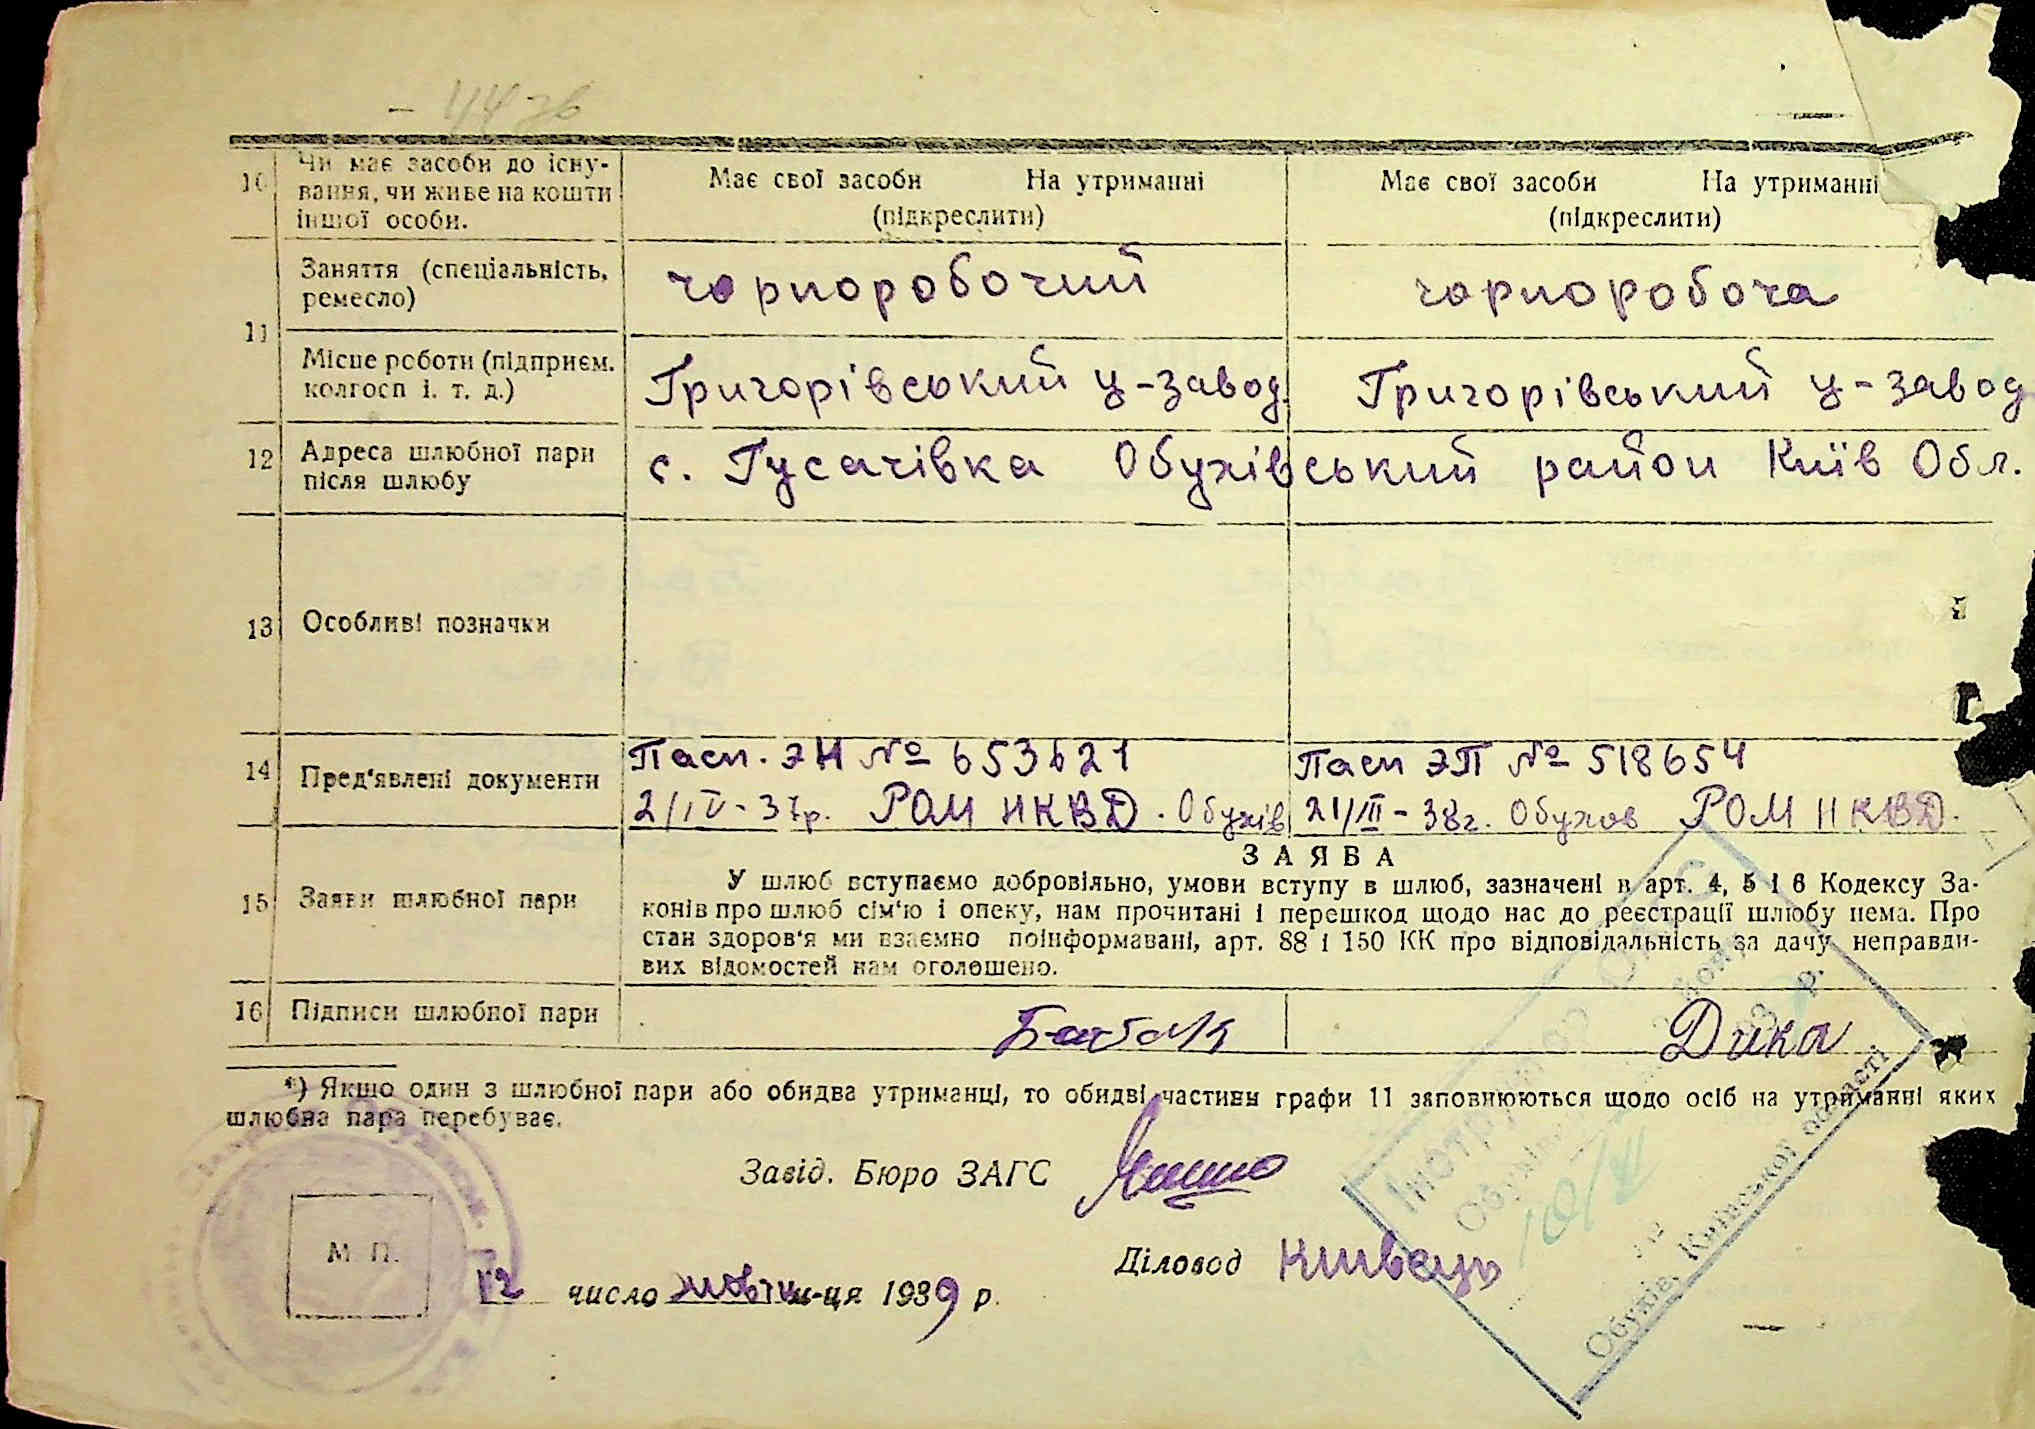 10 Чи має засоби до існу-
вання, чи живе на кошти
іншої особи.
Має свої засоби На утриманні
(підкреслити)
Має свої засоби На утриманні
(підкреслити)
11
Заняття (спеціальність,
ремесло)
чорноробочий
чорноробоча
Місце роботи (підприєм.
колгосп і. т. д.)
Григорівський ц-завод.
Григорівський ц-завод
12 Адреса шлюбної пари
після шлюбу
с. Гусачівка Обухівський район Київ Обл.
13 Особливі позначки
14 Пред'явлені документи
Пасп. ЭН № 653621
2/IV-37р. РОМ НКВД. Обухів
Пасп ЭП № 518654
21/III-38г. Обухов РОМ НКВД.
15 Заяви шлюбної пари
ЗАЯВА
У шлюб вступаємо добровільно, умови вступу в шлюб, зазначені в арт. 4, 5 і 6 Кодексу За-
конів про шлюб сім'ю і опеку, нам прочитані і перешкод щодо нас до реєстрації шлюбу нема. Про
стан здоров'я ми взаємно поінформавані, арт. 88 і 150 КК про відповідальність за дачу неправди-
вих відомостей нам оголошено.
16 Підписи шлюбної пари
Бабак
Дика
*) Якшо один з шлюбної пари або обидва утриманці, то обидві частини графи 11 заповнюються щодо осіб на утриманні яких
шлюбна пара перебуває.
Завід. Бюро ЗАГС
Діловод
М. П.
12 число жовтн м-ця 1939 р.
Обухів, Київської області